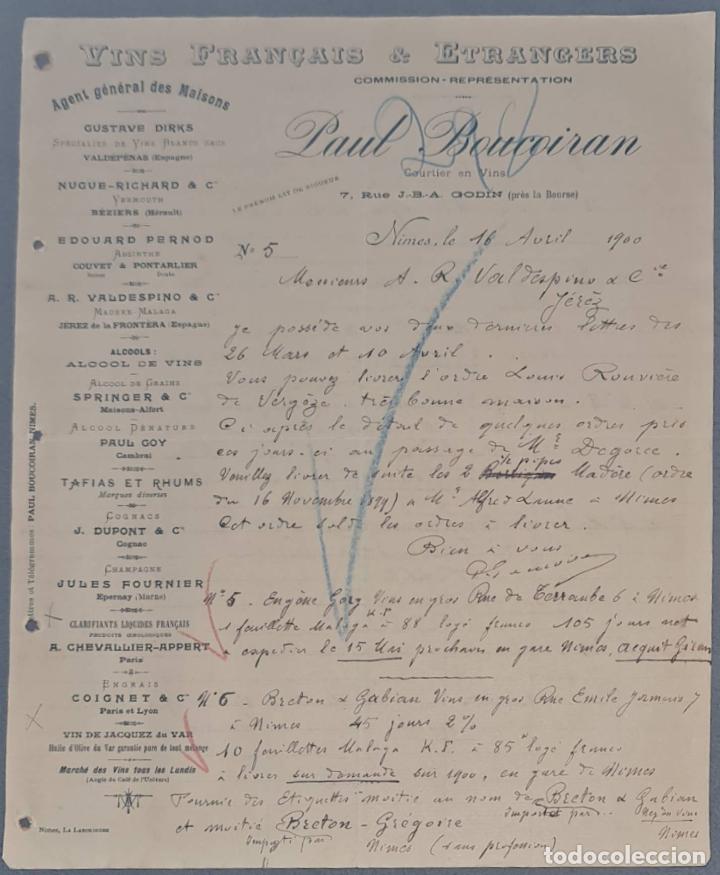 VINS FRANÇAIS & ETRANGERS
COMMISSION - REPRÉSENTATION
Paul Boucoiran
Courtier en Vins
7, Rue J.-B.-A. GODIN (près la Bourse)
LE PRÉNOM EST DE RIGUEUR
Agent général des Maisons
GUSTAVE DIRKS
SPÉCIALITÉS DE VINS BLANCS SECS
VALDEPENAS (Espagne)
NUGUE-RICHARD & Cie
VERMOUTH
BÉZIERS (Hérault)
EDOUARD PERNOD
ABSINTHE
COUVET & PONTARLIER
Suisse Doubs
A. R. VALDESPINO & Cie
MADÈRE-MALAGA
JÉREZ de la FRONTÉRA (Espagne)
ALCOOLS :
ALCOOL DE VINS
ALCOOL DE GRAINS
SPRINGER & Cie
Maisons-Alfort
ALCOOL DÉNATURÉ
PAUL GOY
Cambrai
TAFIAS ET RHUMS
Marques diverses
COGNACS
J. DUPONT & Cie
Cognac
CHAMPAGNE
JULES FOURNIER
Epernay (Marne)
CLARIFIANTS LIQUIDES FRANÇAIS
PRODUITS ŒNOLOGIQUES
A. CHEVALLIER-APPERT
Paris
ENGRAIS
COIGNET & Cie
Paris et Lyon
VIN DE JACQUEZ DU VAR
Huile d'Olive du Var garantie pure de tout mélange
Marché des Vins tous les Lundis
(Angle du Café de l'Univers)
Nimes, La Laborieuse
Lettres et Télégrammes : PAUL BOUCOIRAN NIMES.
Nimes, le 16 Avril 1900
No 5
Messieurs A. R. Valdespino & Cie
Jérèz
Je possède vos deux dernières lettres des
26 Mars et 10 Avril.
Vous pouvez livrer l'ordre Louis Rouvière
de Vergèze, très bonne maison.
Ci après le détail de quelques ordres pris
ces jours-ci au passage de Mr Degorce.
Veuillez livrer de suite les 2 1/2 pipes Madère (ordre
du 16 Novembre 1899) à Mr Alfred à Nimes
Cet ordre solde les ordres à livrer.
Bien à vous
No 5 - Eugène Gorg Vins en gros Rue de Terraube 6 à Nimes
1 feuillette Malaga K.F. à 88 logé franco 105 jours net
à expédier le 15 Mai prochain en gare Nimes, acquit
No 6 - Breton & Gabian Vins en gros Rue Emile Jamais 7
à Nimes 45 jours 2%
10 feuillettes Malaga K.F. à 85 logé franco
à livrer sur demande sur 1900, en gare de Nimes
Fournir des Etiquettes moitié au nom de Breton & Gabian
importé par Nimes
et moitié Breton - Grégoire
importé par Nimes (sans profession)